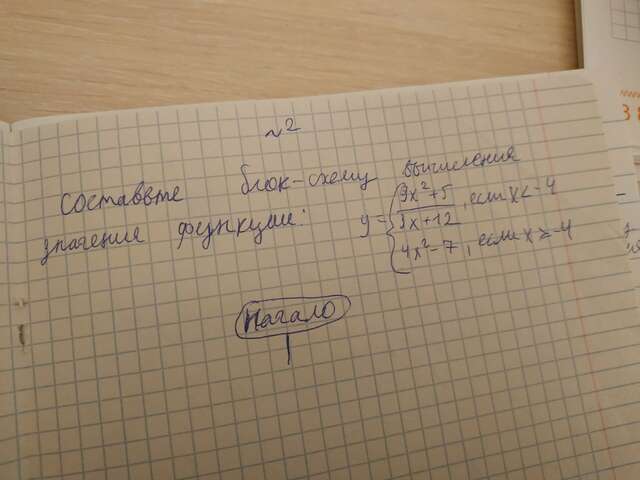 №2
Составьте блок-схему вычисления
значения функции: y = { (9x²+5)/(3x+12), если x < -4
4x²-7, если x ≥ -4
Начало
38